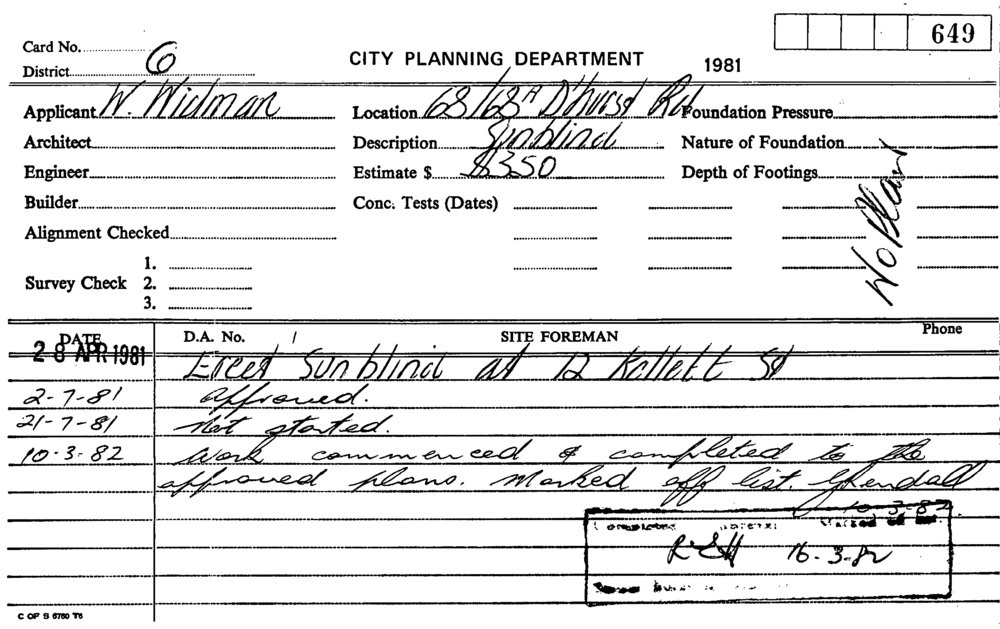 649
Card No.
District 6
CITY PLANNING DEPARTMENT 1981
Applicant W. Widman Location 68/68A D'hurst Rd Foundation Pressure
Architect Description Sunblind Nature of Foundation
Engineer Estimate $ $350 Depth of Footings
Builder Conc. Tests (Dates)
No Plans
Alignment Checked
1.
Survey Check 2.
3.
DATE D.A. No. SITE FOREMAN Phone
28 APR 1981 Erect Sunblind at 12 Kellett St
2-7-81 approved.
21-7-81 Not started.
10-3-82 Work commenced & completed to the
approved plans. Marked off list.
10-3-82.
Completed
16-3-82
C OF S 6760 T6